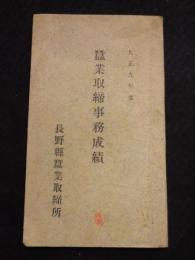 大正九年度
蠶業取締事務成績
長野縣蠶業取締所